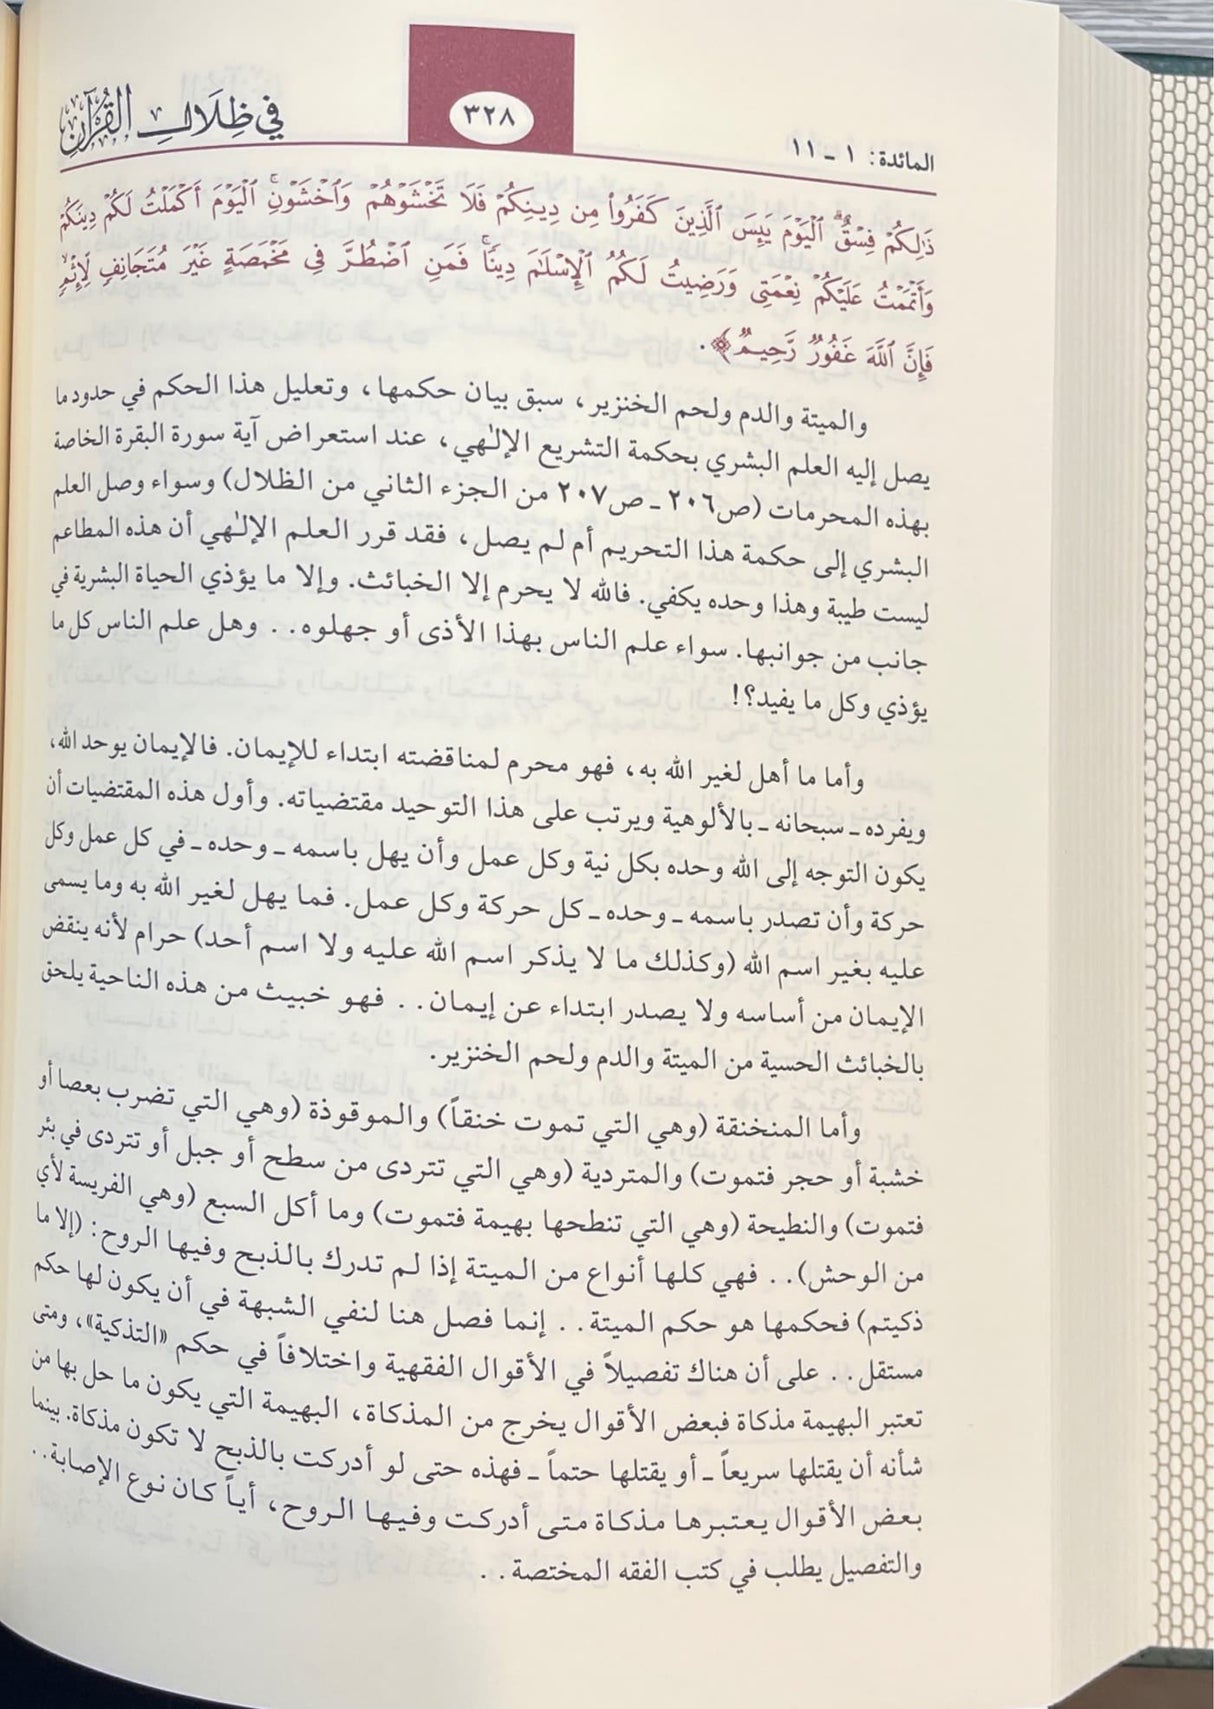 المائدة: ١ - ١١
٣٢٨
في ظِلَالِ القُرْآنِ
ذَٰلِكُمْ فِسْقٌ ۗ ٱلْيَوْمَ يَئِسَ ٱلَّذِينَ كَفَرُوا۟ مِن دِينِكُمْ فَلَا تَخْشَوْهُمْ وَٱخْشَوْنِ ۚ ٱلْيَوْمَ أَكْمَلْتُ لَكُمْ دِينَكُمْ
وَأَتْمَمْتُ عَلَيْكُمْ نِعْمَتِى وَرَضِيتُ لَكُمُ ٱلْإِسْلَٰمَ دِينًا ۚ فَمَنِ ٱضْطُرَّ فِى مَخْمَصَةٍ غَيْرَ مُتَجَانِفٍ لِّإِثْمٍ ۙ
فَإِنَّ ٱللَّهَ غَفُورٌ رَّحِيمٌ﴾.
والميتة والدم ولحم الخنزير، سبق بيان حكمها، وتعليل هذا الحكم في حدود ما
يصل إليه العلم البشري بحكمة التشريع الإلٰهي، عند استعراض آية سورة البقرة الخاصة
بهذه المحرمات (ص٢٠٦ - ص٢٠٧ من الجزء الثاني من الظلال) وسواء وصل العلم
البشري إلى حكمة هذا التحريم أم لم يصل، فقد قرر العلم الإلٰهي أن هذه المطاعم
ليست طيبة وهذا وحده يكفي. فالله لا يحرم إلا الخبائث. وإلا ما يؤذي الحياة البشرية في
جانب من جوانبها. سواء علم الناس بهذا الأذى أو جهلوه.. وهل علم الناس كل ما
يؤذي وكل ما يفيد؟!
وأما ما أهل لغير الله به، فهو محرم لمناقضته ابتداء للإيمان. فالإيمان يوحد الله،
ويفرده - سبحانه - بالألوهية ويرتب على هذا التوحيد مقتضياته. وأول هذه المقتضيات أن
يكون التوجه إلى الله وحده بكل نية وكل عمل وأن يهل باسمه - وحده - في كل عمل وكل
حركة وأن تصدر باسمه - وحده - كل حركة وكل عمل. فما يهل لغير الله به وما يسمى
عليه بغير اسم الله (وكذلك ما لا يذكر اسم الله عليه ولا اسم أحد) حرام لأنه ينقض
الإيمان من أساسه ولا يصدر ابتداء عن إيمان.. فهو خبيث من هذه الناحية يلحق
بالخبائث الحسية من الميتة والدم ولحم الخنزير.
وأما المنخنقة (وهي التي تموت خنقاً) والموقوذة (وهي التي تضرب بعصا أو
خشبة أو حجر فتموت) والمتردية (وهي التي تتردى من سطح أو جبل أو تتردى في بئر
فتموت) والنطيحة (وهي التي تنطحها بهيمة فتموت) وما أكل السبع (وهي الفريسة لأي
من الوحش).. فهي كلها أنواع من الميتة إذا لم تدرك بالذبح وفيها الروح: (إلا ما
ذكيتم) فحكمها هو حكم الميتة.. إنما فصل هنا لنفي الشبهة في أن يكون لها حكم
مستقل.. على أن هناك تفصيلاً في الأقوال الفقهية واختلافاً في حكم «التذكية»، ومتى
تعتبر البهيمة مذكاة فبعض الأقوال يخرج من المذكاة، البهيمة التي يكون ما حل بها من
شأنه أن يقتلها سريعاً - أو يقتلها حتماً - فهذه حتى لو أدركت بالذبح لا تكون مذكاة. بينما
بعض الأقوال يعتبرها مذكاة متى أدركت وفيها الروح، أياً كان نوع الإصابة..
والتفصيل يطلب في كتب الفقه المختصة..